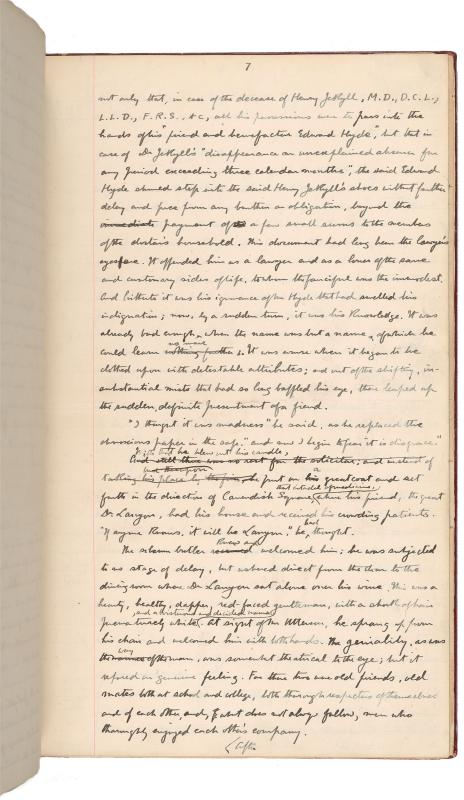 7
not only that, in case of the decease of Henry Jekyll, M.D., D.C.L.,
L.L.D., F.R.S., &c, all his possessions were to pass into the
hands of his "friend and benefactor Edward Hyde", but that in
case of Dr Jekyll's "disappearance or unexplained absence for
any period exceeding three calendar months", the said Edward
Hyde should step into the said Henry Jekyll's shoes without further
delay and free from any burthen or obligation, beyond the
immediate payment of a few small sums to the members
of the doctor's household. This document had long been the lawyer's
eyesore. It offended him as a lawyer and as a lover of the sane
and customary sides of life, to whom the fanciful was the immodest.
And hitherto it was his ignorance of Mr Hyde that had swelled his
indignation; now, by a sudden turn, it was his knowledge. It was
already bad enough, when the name was but a name, of which he
no more
could learn nothing further. It was worse when it began to be
clothed upon with detestable attributes; and out of the shifting, in-
substantial mists that had so long baffled his eye, there leaped up
the sudden, definite presentment of a fiend.
"I thought it was madness" he said, as he replaced the
obnoxious paper in the safe, "and now I begin to fear it is disgrace."
With that he blew out his candle,
And still there was no rest for the solicitor; and instead of
taking his place by the fire, he put on his a great coat and set
that citadel of medicine,
forth in the direction of Cavendish Square, where his friend, the great
Dr Lanyon, had his house and received his crowding patients.
"If anyone knows, it will be Lanyon," he had thought.
knew and
The solemn butler welcomed him; he was subjected
to no stage of delay, but ushered direct from the door to the
dining room where Dr Lanyon sat alone over his wine. This was a
hearty, healthy, dapper, red-faced gentleman, with a shock of hair
and a boisterous and decided manner
prematurely white. At sight of Mr Utterson, he sprang up from
his chair and welcomed him with both hands. The geniality, as was
way
the manner of the man, was somewhat theatrical to the eye; but it
reposed on genuine feeling. For these two were old friends, old
mates both at school and college, both thorough respecters of themselves
and of each other, and, what does not always follow, men who
thoroughly enjoyed each other's company.
After